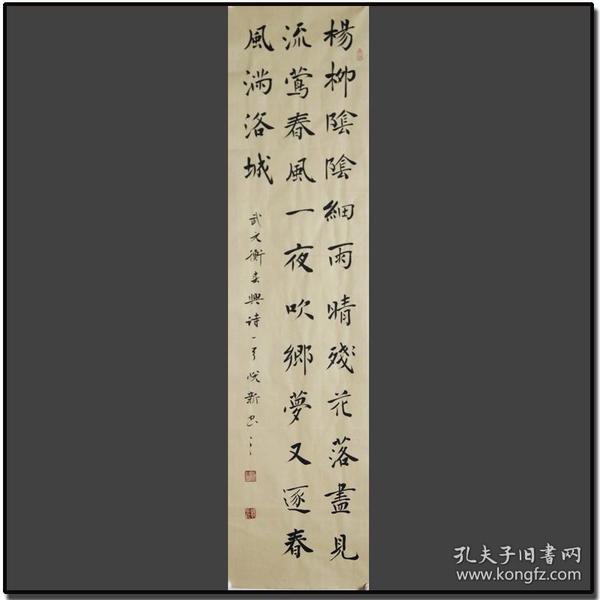 楊柳陰陰細雨晴殘花落盡見
流鶯春風一夜吹鄉夢又逐春
風滿洛城
武元衡春興诗一首
孔夫子旧書网
www.kongfz.com